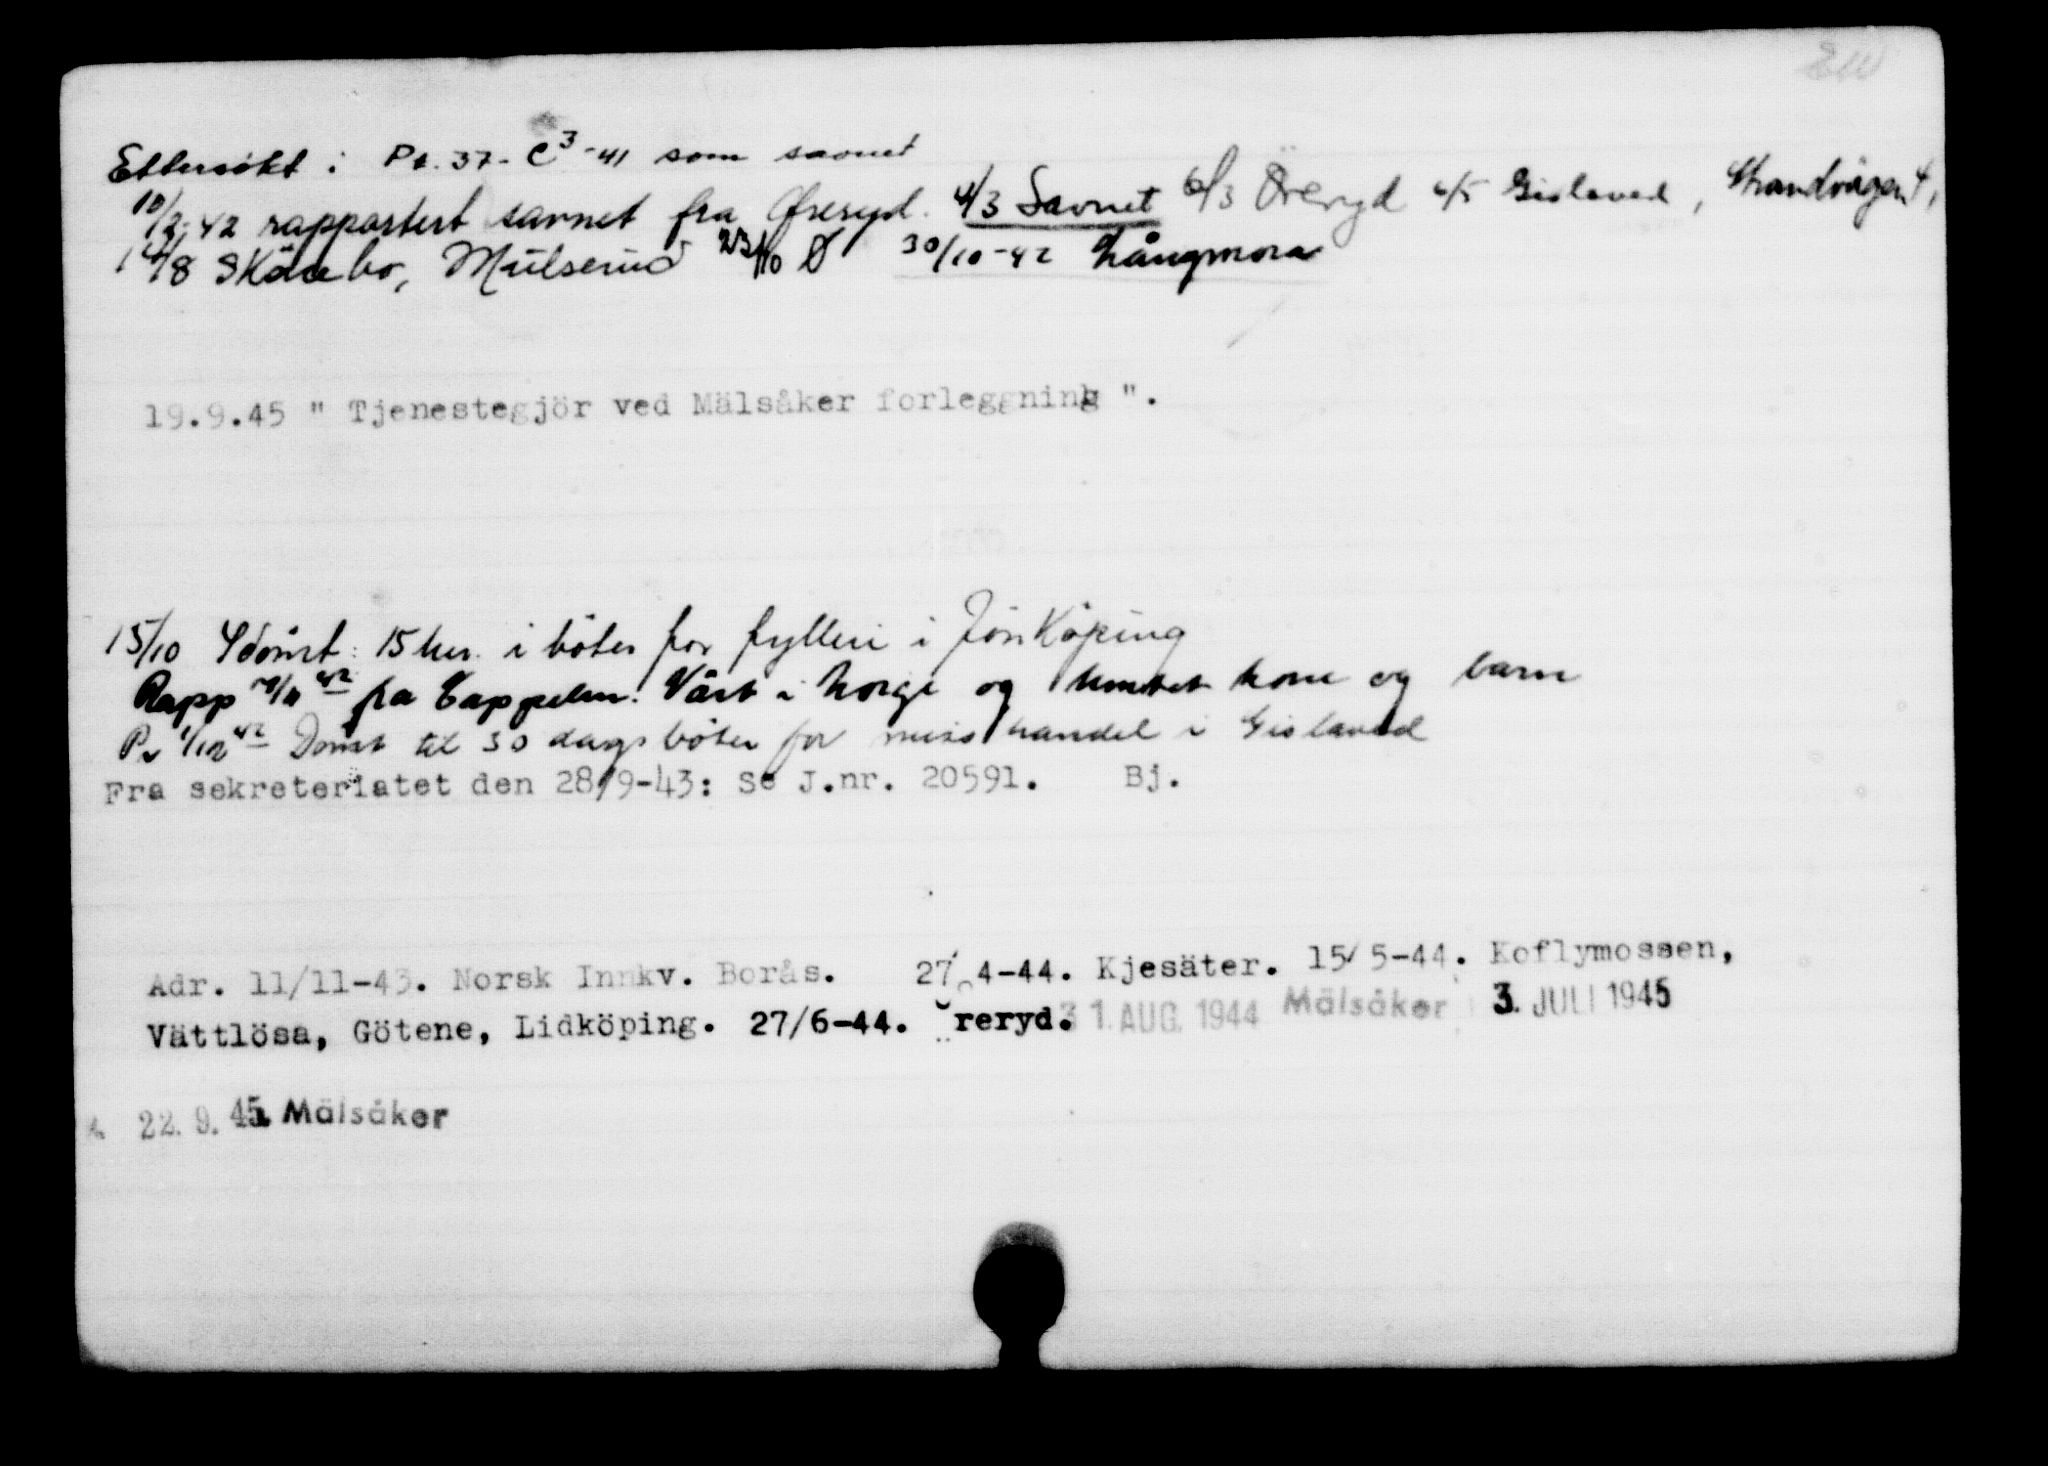 Ettersökt i Pt. 37- C³-41 som savnet
10/2-42 rapportert savnet fra Øreryd. 4/3 Savnet 6/3 Öreryd 4/5 Gislaved, Strandvägen 4,
14/8 Skärebo, Mulserud 23/10 Ø 30/10-42 Långmora
19.9.45 " Tjenestegjör ved Mälsåker forleggning ".
15/10 Idömt: 15 kr. i böter for fylleri i Jönköping
Rapp 10/11 42 fra Cappelen. Vært i Norge og hentet kone og barn
Pv 1/12 42 Dömt til 30 dagsböter for misshandel i Gislaved
Fra sekreteriatet den 28/9-43: Se J.nr. 20591. Bj.
Adr. 11/11-43. Norsk Innkv. Borås. 27/4-44. Kjesäter. 15/5-44. Koflymossen,
Vättlösa, Götene, Lidköping. 27/6-44. Öreryd. 31. AUG. 1944 Mälsåker 3. JULI 1945
22. 9. 45. Mälsåker